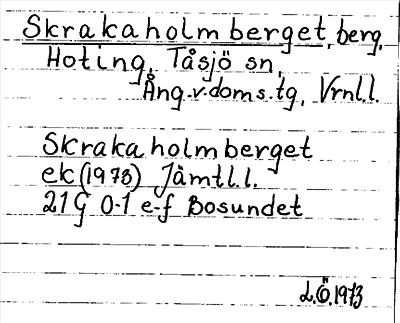 Skrakaholmberget, berg.
Hoting, Tåsjö sn,
Ång.v.doms.tg, Vrnl.l.
Skrakaholmberget
ek (1973) Jämtl.l.
21 G 0-1 e-f Bosundet
L.Ö. 1973